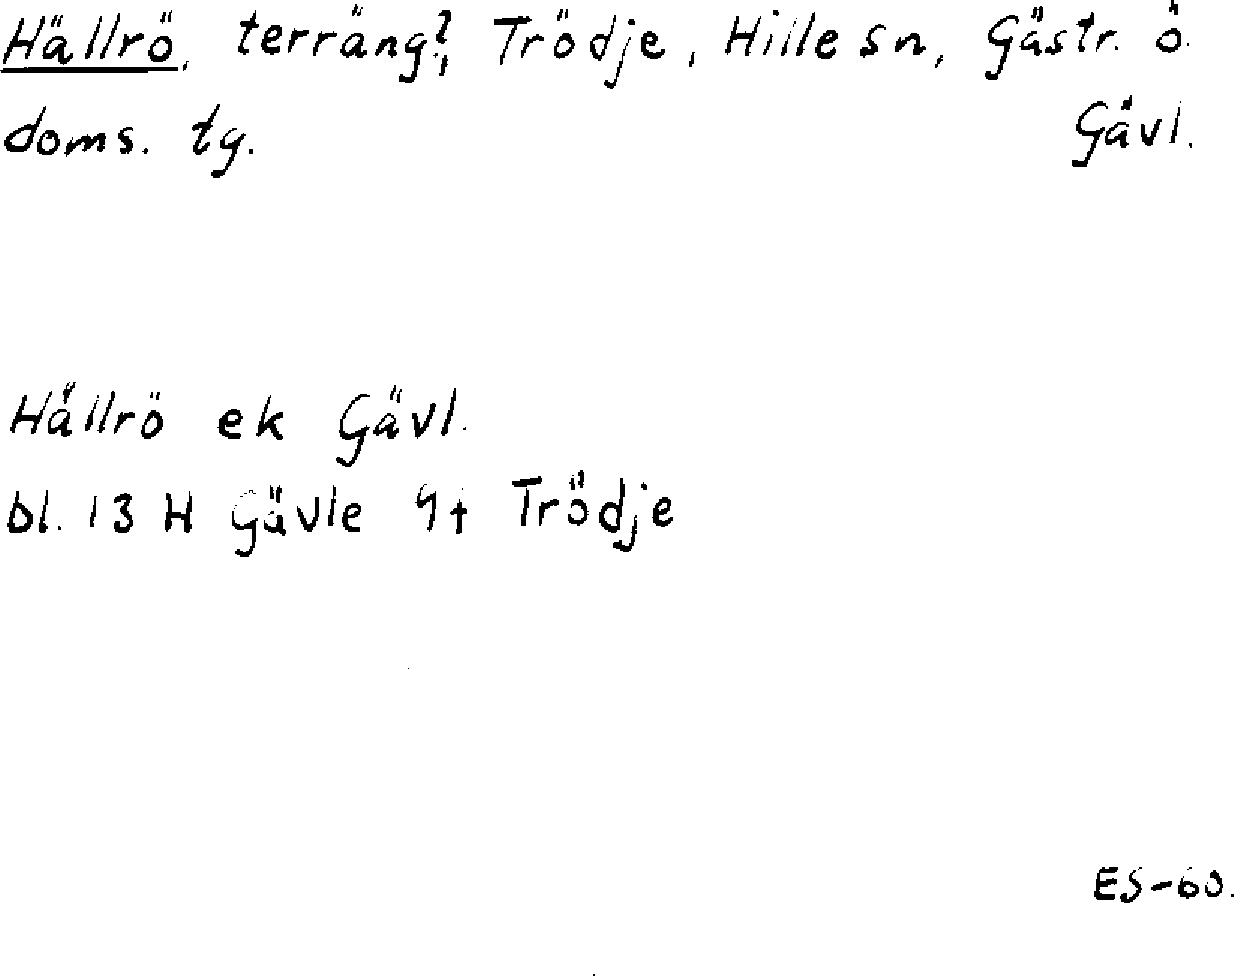 Hällrö, terräng?, Trödje, Hille sn, Gästr. ö.
doms. tg. Gävl.
Hällrö ek Gävl.
bl. 13 H Gävle 9f Trödje
ES-60.